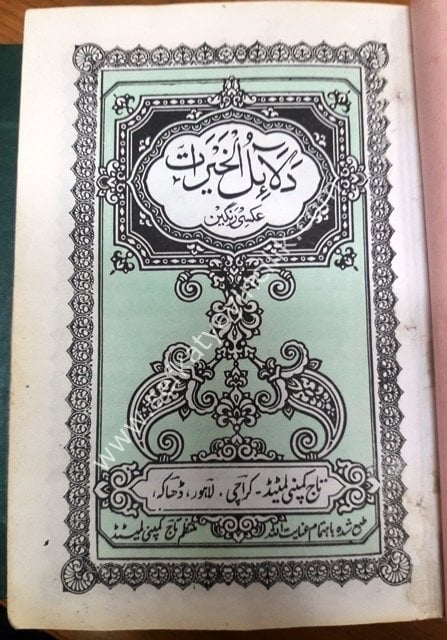 دلائل الخیرات
عکسی رنگین
تاج کمپنی لمیٹڈ - کراچی، لاہور، ڈھاکہ،
طبع شدہ باہتمام عنایت اللہ منتظم تاج کمپنی لمیٹڈ